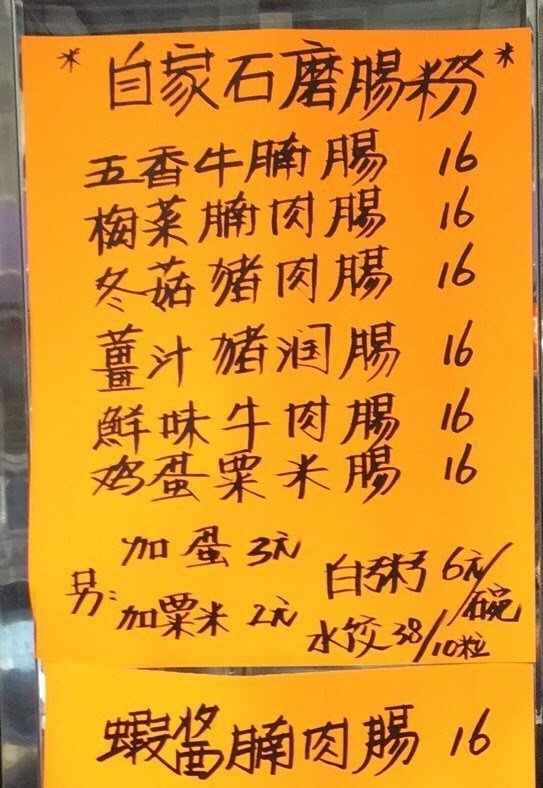 *自家石磨腸粉*
五香牛腩腸 16
梅菜腩肉腸 16
冬菇豬肉腸 16
薑汁豬润腸 16
鮮味牛肉腸 16
鸡蛋粟米腸 16
加蛋 3元
另:
加粟米 2元
白粥 6元/碗
水饺 38/10粒
蝦醬腩肉腸 16